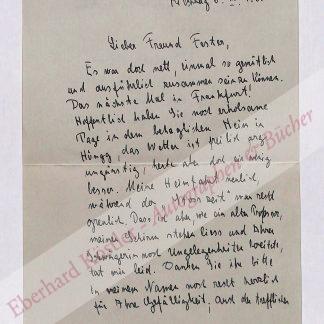 Lieber Freund Foster,
Es war doch nett, einmal so gemütlich
und ausführlich zusammen sein zu können.
Das nächste Mal in Frankfurt!
Hoffentlich haben Sie noch erholsame
Tage in dem behaglichen Heim in
Höngg, das Wetter ist freilich arg
ungünstig, heute aber doch ein wenig
besser. Meine Heimfahrt neulich,
während der "Stosszeit" war recht
greulich. Dass ich aber, wie ein alter Professor,
meinen Schirm stehen liess und Ihrer
Schwägerin noch Ungelegenheiten bereitete,
tat mir leid. Danken Sie ihr bitte
in meinem Namen noch recht herzlich
für Ihre Gefälligkeit, und der trefflichen
Eberhard Köstler - Autographen & Bücher